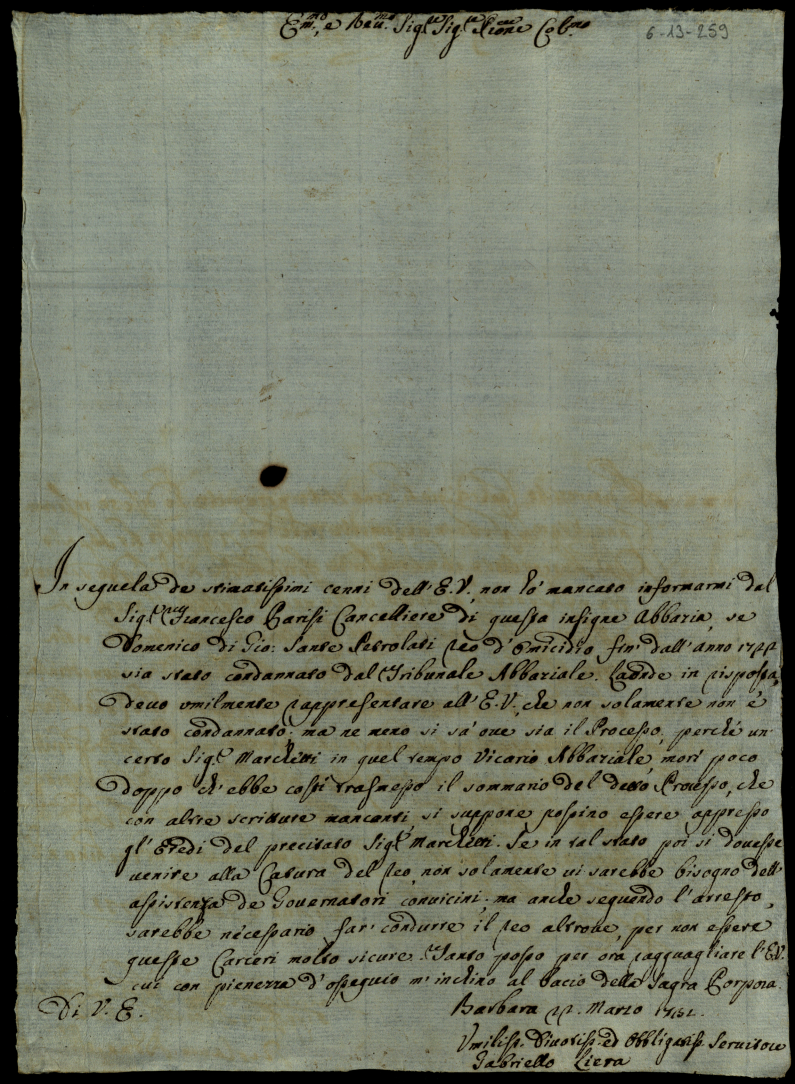 Em.mo, e Reu.mo Sig.re Sig.re P̃rone Col.mo
6-13-259
In seguela de stimatissimi cenni dell'E.V. non hò mancato informarmi dal
Sig.r Francesco Parisi Cancelliere di questa insigne Abbazia, se
Domenico di Gio: Sante Petrolati reo d'Omicidio fin' dall'anno
sia stato condannato dal Tribunale Abbaziale. Laonde in risposta,
deuo vmilmente rappresentare all'E.V., che non solamente non è
stato condannato; ma ne meno si sà oue sia il Processo, perché un'
certo Sig.r Marchetti in quel tempo Vicario Abbaziale, morì poco
doppo ch'ebbe costì trasmesso il sommario del detto Processo, che
con altre scritture mancanti si suppone possino essere appresso
gl'Eredi del precitato Sig.r Marchetti. Se in tal stato poi si douesse
uenire alla Catura del reo, non solamente ui sarebbe bisogno dell'
assistenza de Gouernatori conuicini; ma anche seguendo l'arresto,
sarebbe necessario far' condurre il reo altroue, per non essere
queste Carceri molto sicure. Tanto posso per ora ragguagliare l'E.V.
cui con pienezza d'ossequio m'inchino al bacio della Sagra Porpora.
Di V. E. Barbara Marzo
Vmiliss. Diuotiss. ed Obbligatiss. Seruitore
Gabriello Liera